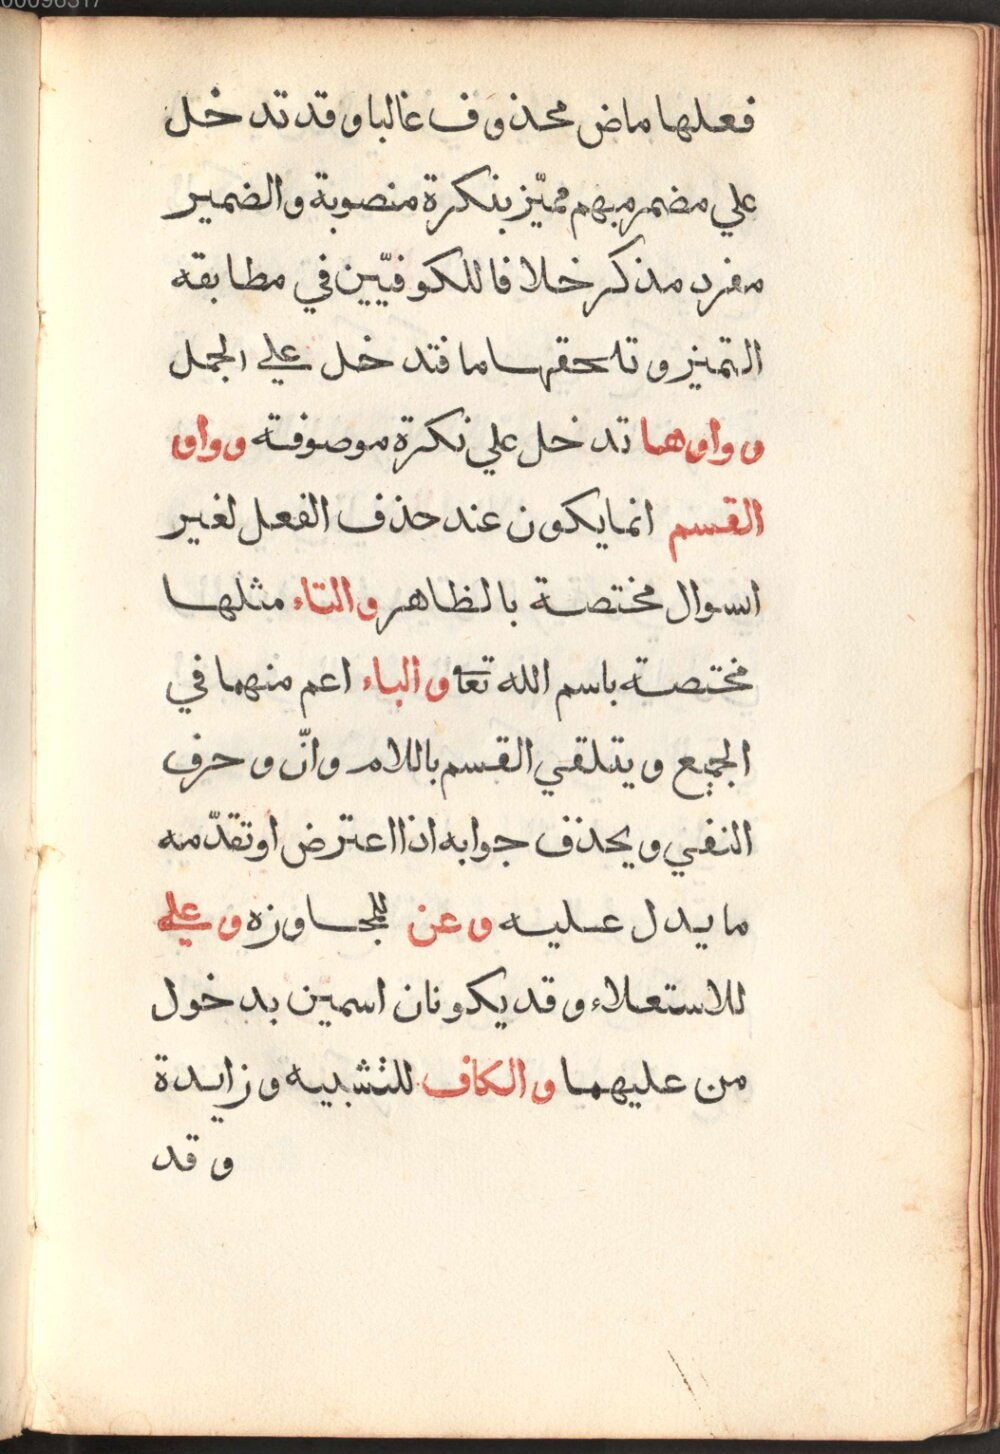 00096317
فعلها ماض محذوف غالبا وقد تدخل
علي مضمر مبهم مميّز بنكرة منصوبة والضمير
مفرد مذكر خلافا للكوفيّين في مطابقه
التميز وتلحقها ما فتدخل علي الجمل
وواوها تدخل علي نكرة موصوفة وواو
القسم انما يكون عند حذف الفعل لغير
السوال مختصة بالظاهر والتاء مثلها
مختصة باسم الله تعا والباء اعم منهما في
الجميع ويتلقي القسم باللام وانّ وحرف
النفي ويحذف جوابه اذا اعترض او تقدّمه
ما يدل عليه وعن للمجاوزه وعلي
للاستعلاء وقد يكونان اسمين بدخول
من عليهما والكاف للتشبيه وزايدة
وقد